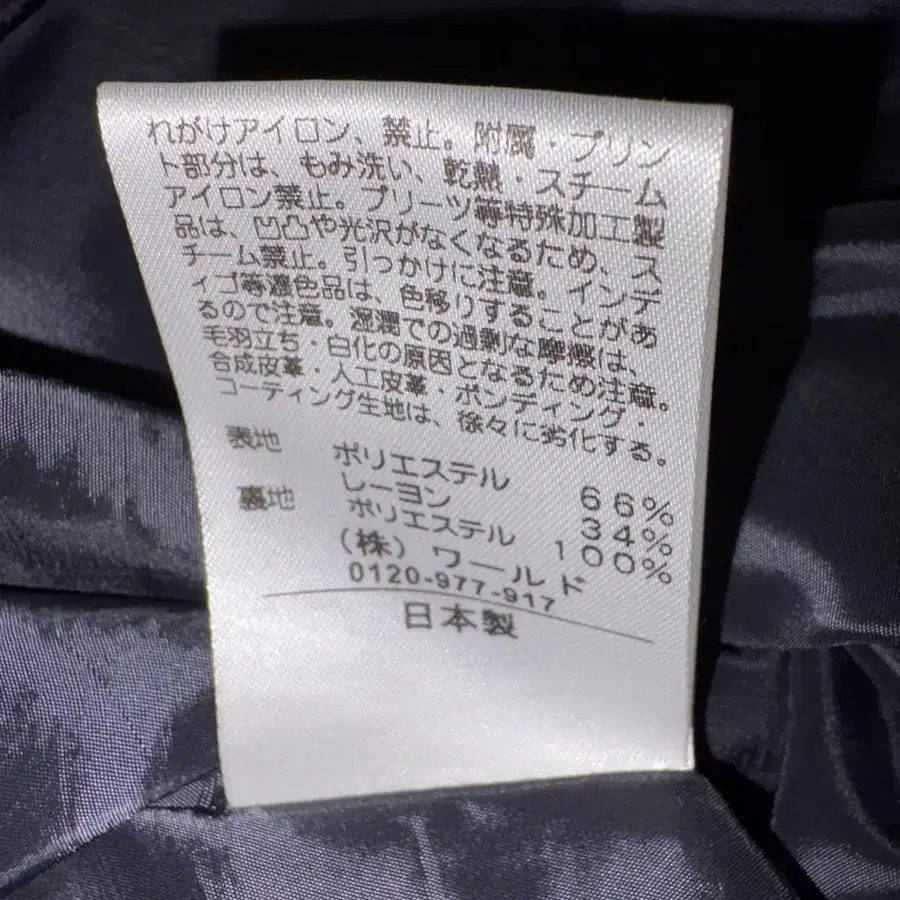 れがけアイロン、禁止。附属・プリン
ト部分は、もみ洗い、乾熱・スチーム
アイロン禁止。プリーツ等特殊加工製
品は、凹凸や光沢がなくなるため、ス
チーム禁止。引っかけに注意。インデ
ィゴ等濃色品は、色移りすることがあ
るので注意。湿潤での過剰な摩擦は、
毛羽立ち・白化の原因となるため注意。
合成皮革・人工皮革・ボンディング・
コーティング生地は、徐々に劣化する。
表地 ポリエステル 66%
レーヨン 34%
裏地 ポリエステル 100%
(株) ワールド
0120-977-917
日本製